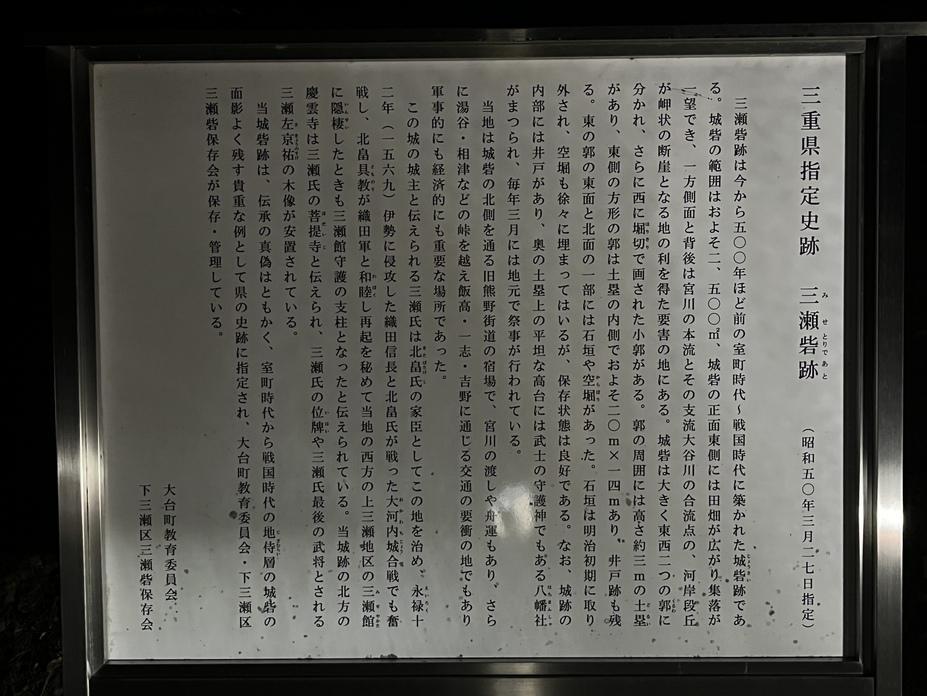 三重県指定史跡　三瀬砦跡　（昭和五〇年三月二七日指定）
三瀬砦跡は今から五〇〇年ほど前の室町時代～戦国時代に築かれた城砦跡であ
る。城砦の範囲はおよそ二、五〇〇㎡、城砦の正面東側には田畑が広がり集落が
一望でき、一方側面と背後は宮川の本流とその支流大谷川の合流点の、河岸段丘
が岬状の断崖となる地の利を得た要害の地にある。城砦は大きく東西二つの郭に
分かれ、さらに西に堀切で画された小郭がある。郭の周囲には高さ約三ｍの土塁
があり、東側の方形の郭は土塁の内側でおよそ二〇ｍ×一四ｍあり、井戸跡も残
る。東の郭の東面と北面の一部には石垣や空堀があった。石垣は明治初期に取り
外され、空堀も徐々に埋まってはいるが、保存状態は良好である。なお、城跡の
内部には井戸があり、奥の土塁上の平坦な高台には武士の守護神でもある八幡社
がまつられ、毎年三月には地元で祭事が行われている。
当地は城砦の北側を通る旧熊野街道の宿場で、宮川の渡しや舟運もあり、さら
に湯谷・相津などの峠を越え飯高・一志・吉野に通じる交通の要衝の地でもあり
軍事的にも経済的にも重要な場所であった。
この城の城主と伝えられる三瀬氏は北畠氏の家臣としてこの地を治め、永禄十
二年（一五六九）伊勢に侵攻した織田信長と北畠氏が戦った大河内城合戦でも奮
戦し、北畠具教が織田軍と和睦し再起を秘めて当地の西方の上三瀬地区の三瀬館
に隠棲したときも三瀬館守護の支柱となったと伝えられている。当城跡の北方の
慶雲寺は三瀬氏の菩提寺と伝えられ、三瀬氏の位牌や三瀬氏最後の武将とされる
三瀬左京祐の木像が安置されている。
当城砦跡は、伝承の真偽はともかく、室町時代から戦国時代の地侍層の城砦の
面影よく残す貴重な例として県の史跡に指定され、大台町教育委員会・下三瀬区
三瀬砦保存会が保存・管理している。
大台町教育委員会
下三瀬区三瀬砦保存会